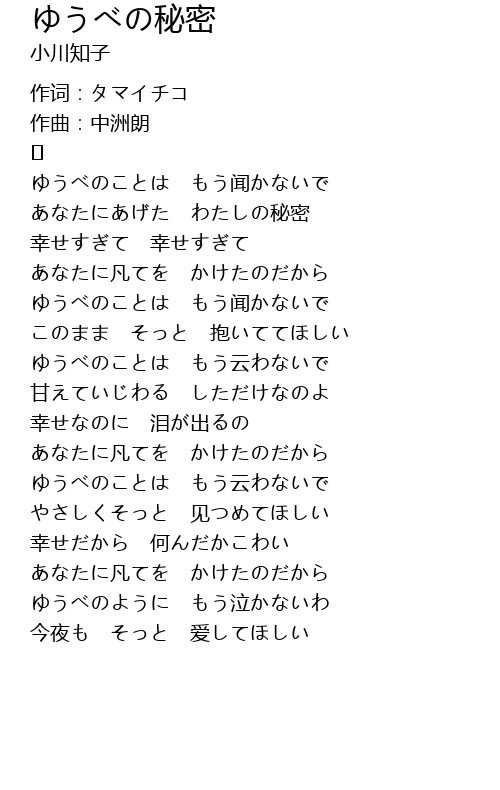 ゆうべの秘密
小川知子
作词：タマイチコ
作曲：中洲朗
ゆうべのことは　もう闻かないで
あなたにあげた　わたしの秘密
幸せすぎて　幸せすぎて
あなたに凡てを　かけたのだから
ゆうべのことは　もう闻かないで
このまま　そっと　抱いててほしい
ゆうべのことは　もう云わないで
甘えていじわる　しただけなのよ
幸せなのに　泪が出るの
あなたに凡てを　かけたのだから
ゆうべのことは　もう云わないで
やさしくそっと　见つめてほしい
幸せだから　何んだかこわい
あなたに凡てを　かけたのだから
ゆうべのように　もう泣かないわ
今夜も　そっと　爱してほしい